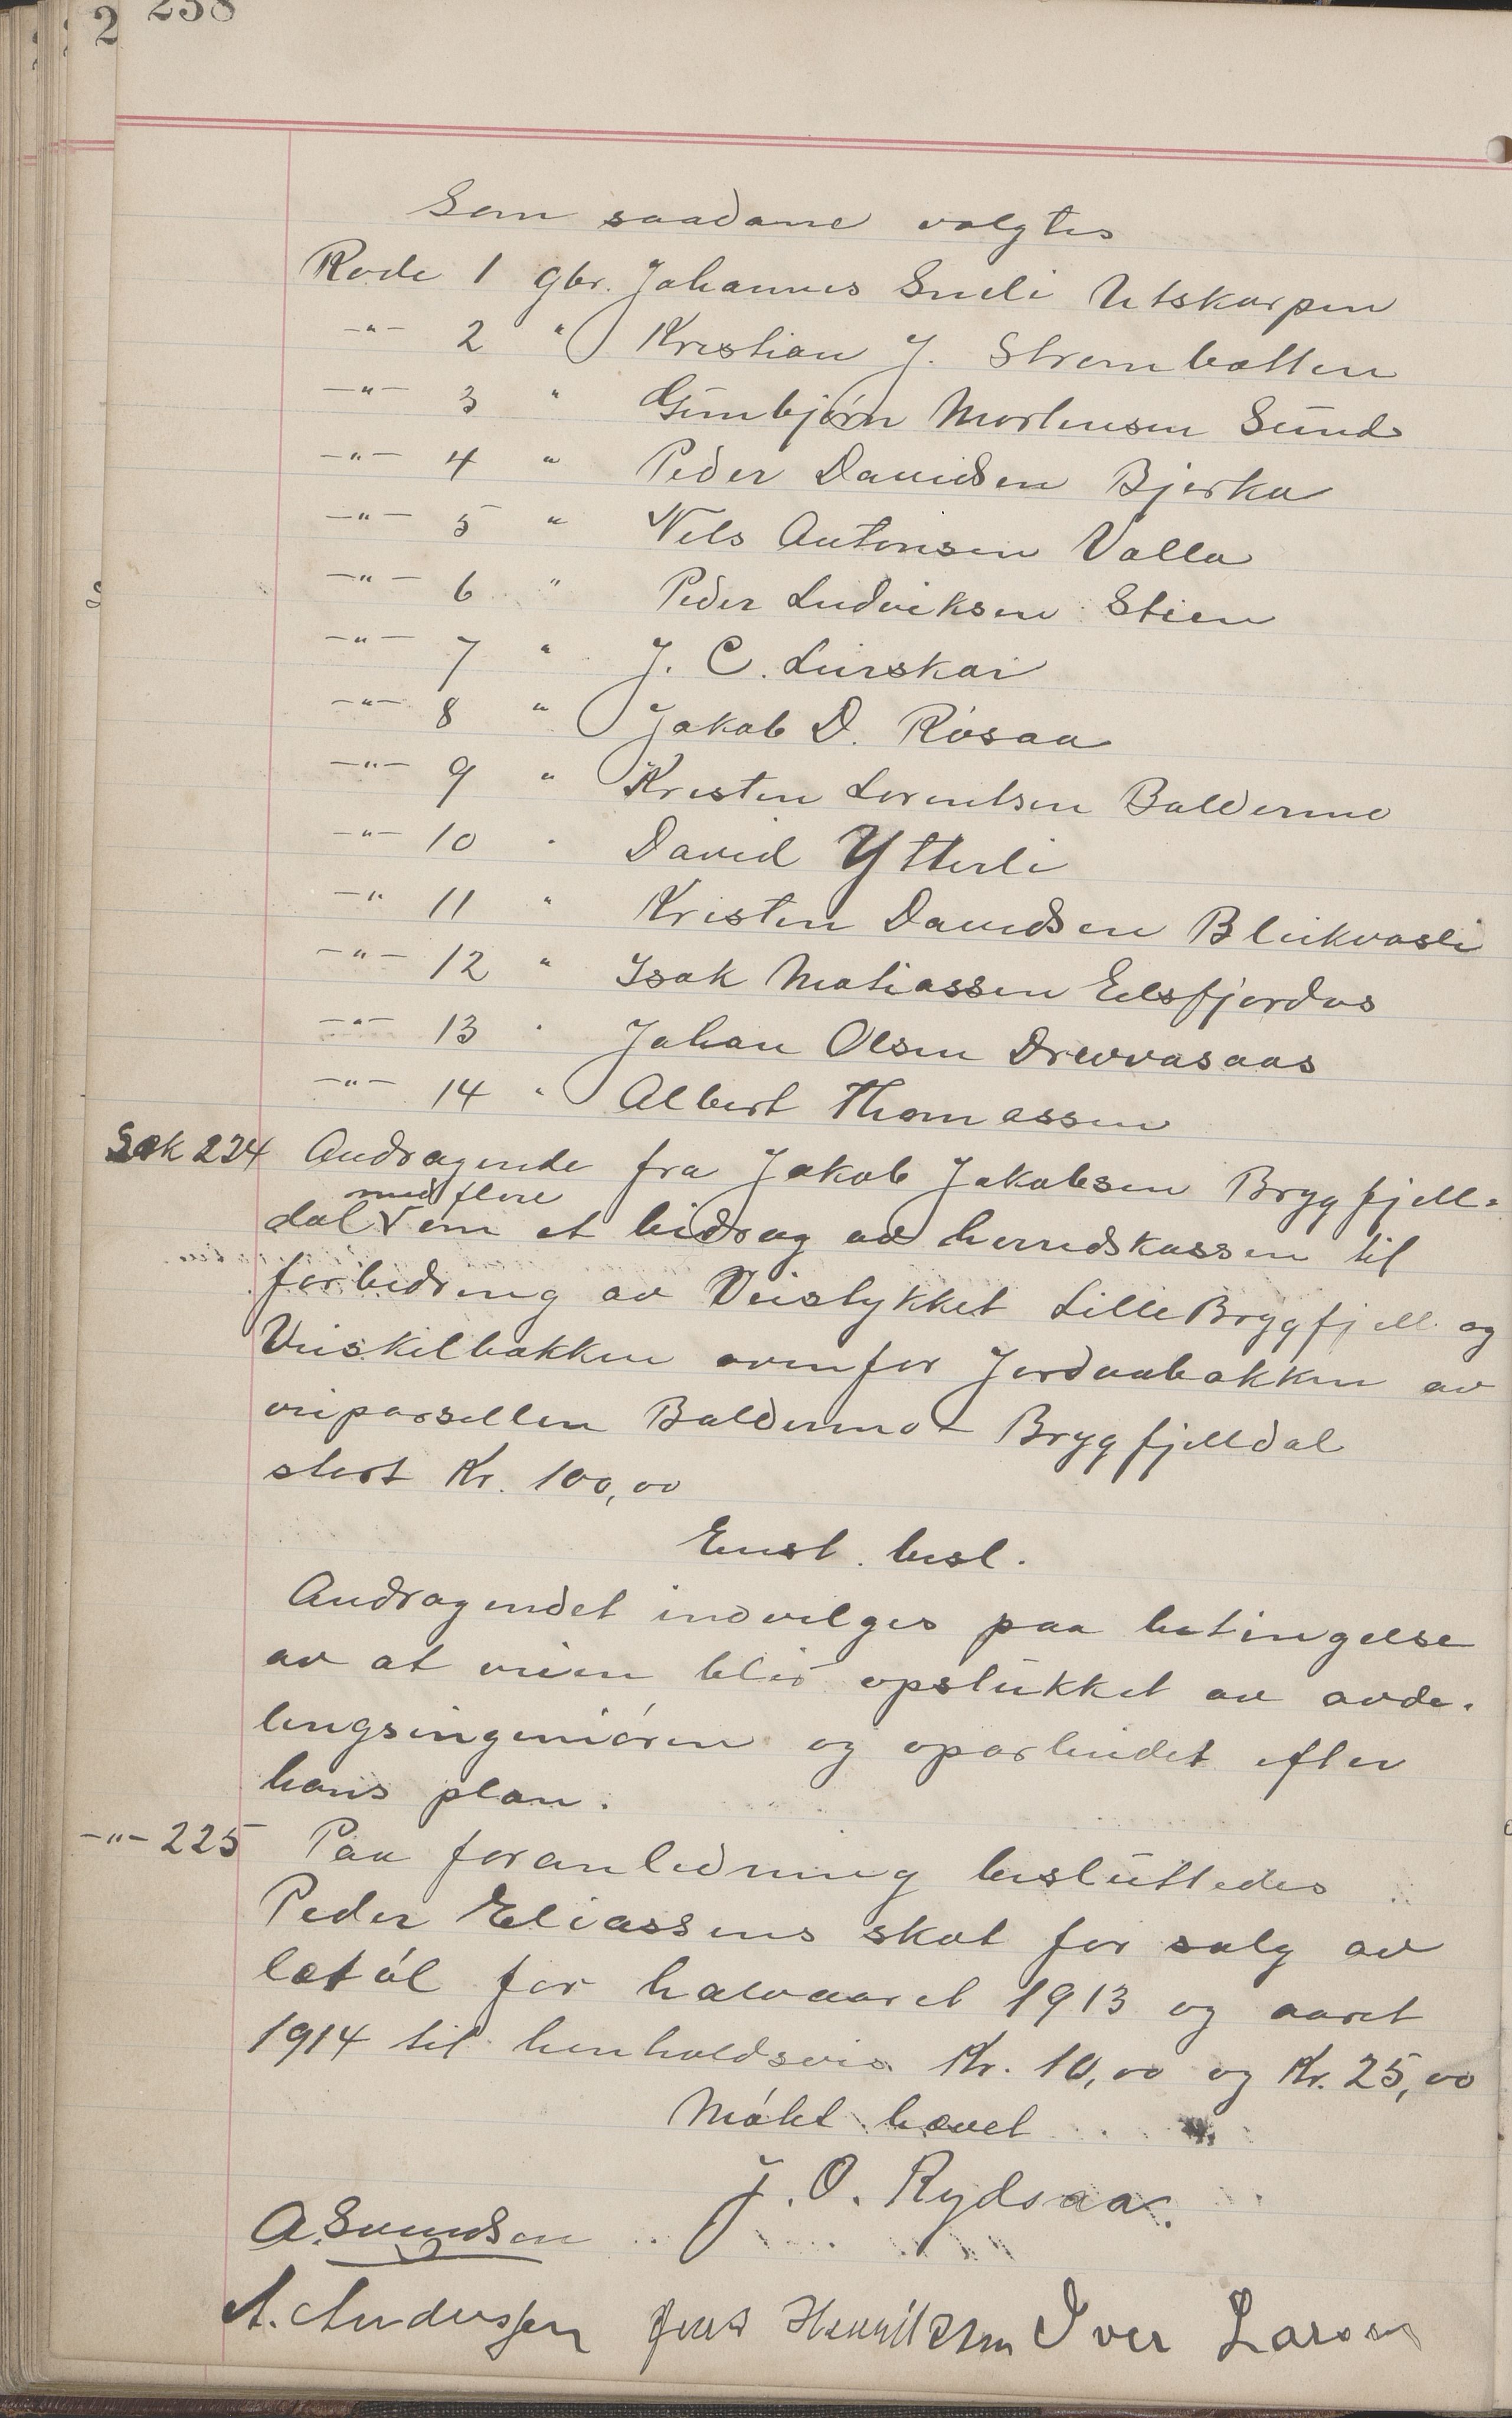 238
Som saadane valgtes
Rode 1 gbr. Johannes Sneli Utskarpen
-"- 2 " Kristian J. Strømbotten
-"- 3 " Gunbjørn Mortensen Sund
-"- 4 " Peder Davidsen Bjerka
-"- 5 " Nels Antonsen Valla
-"- 6 " Peder Ludviksen Stien
-"- 7 " J. C. Lurskai
-"- 8 " Jakob D. Røsaa
-"- 9 " Kristen Lorentsen Baldermo
-"- 10 " David Ytterli
-"- 11 " Kristen Davidsen Bleikvasli
-"- 12 " Isak Matiassen Elsfjordas
-"- 13 " Johan Olsen Drevvasaas
-"- 14 " Albert Thomassen
Sak 224 Andragende fra Jakob Jakobsen Brygfjell-
med flere
dal om et bidrag av herredskassen til
forbedring av Veistykket Lille Brygfjell og
Veiskilbakken ovenfor Jordbakken av
veiparsellen Baldermo - Brygfjelldal
stort Kr. 100,00
Enst. besl.
Andragendet indvilges paa betingelse
av at veien blir opstukket av avde-
lingsingeniøren og oparbeidet efter
hans plan.
-"- 225 Paa foranledning besluttedes
Peder Eliassens skat for salg av
letøl for halvaaret 1913 og aaret
1914 til henholdsvis Kr. 10,00 og Kr. 25,00
Møtet hævet
J. O. Rydsaa.
A. Svendsen
A. Anderssen Jens Henriksen Iver Larsen